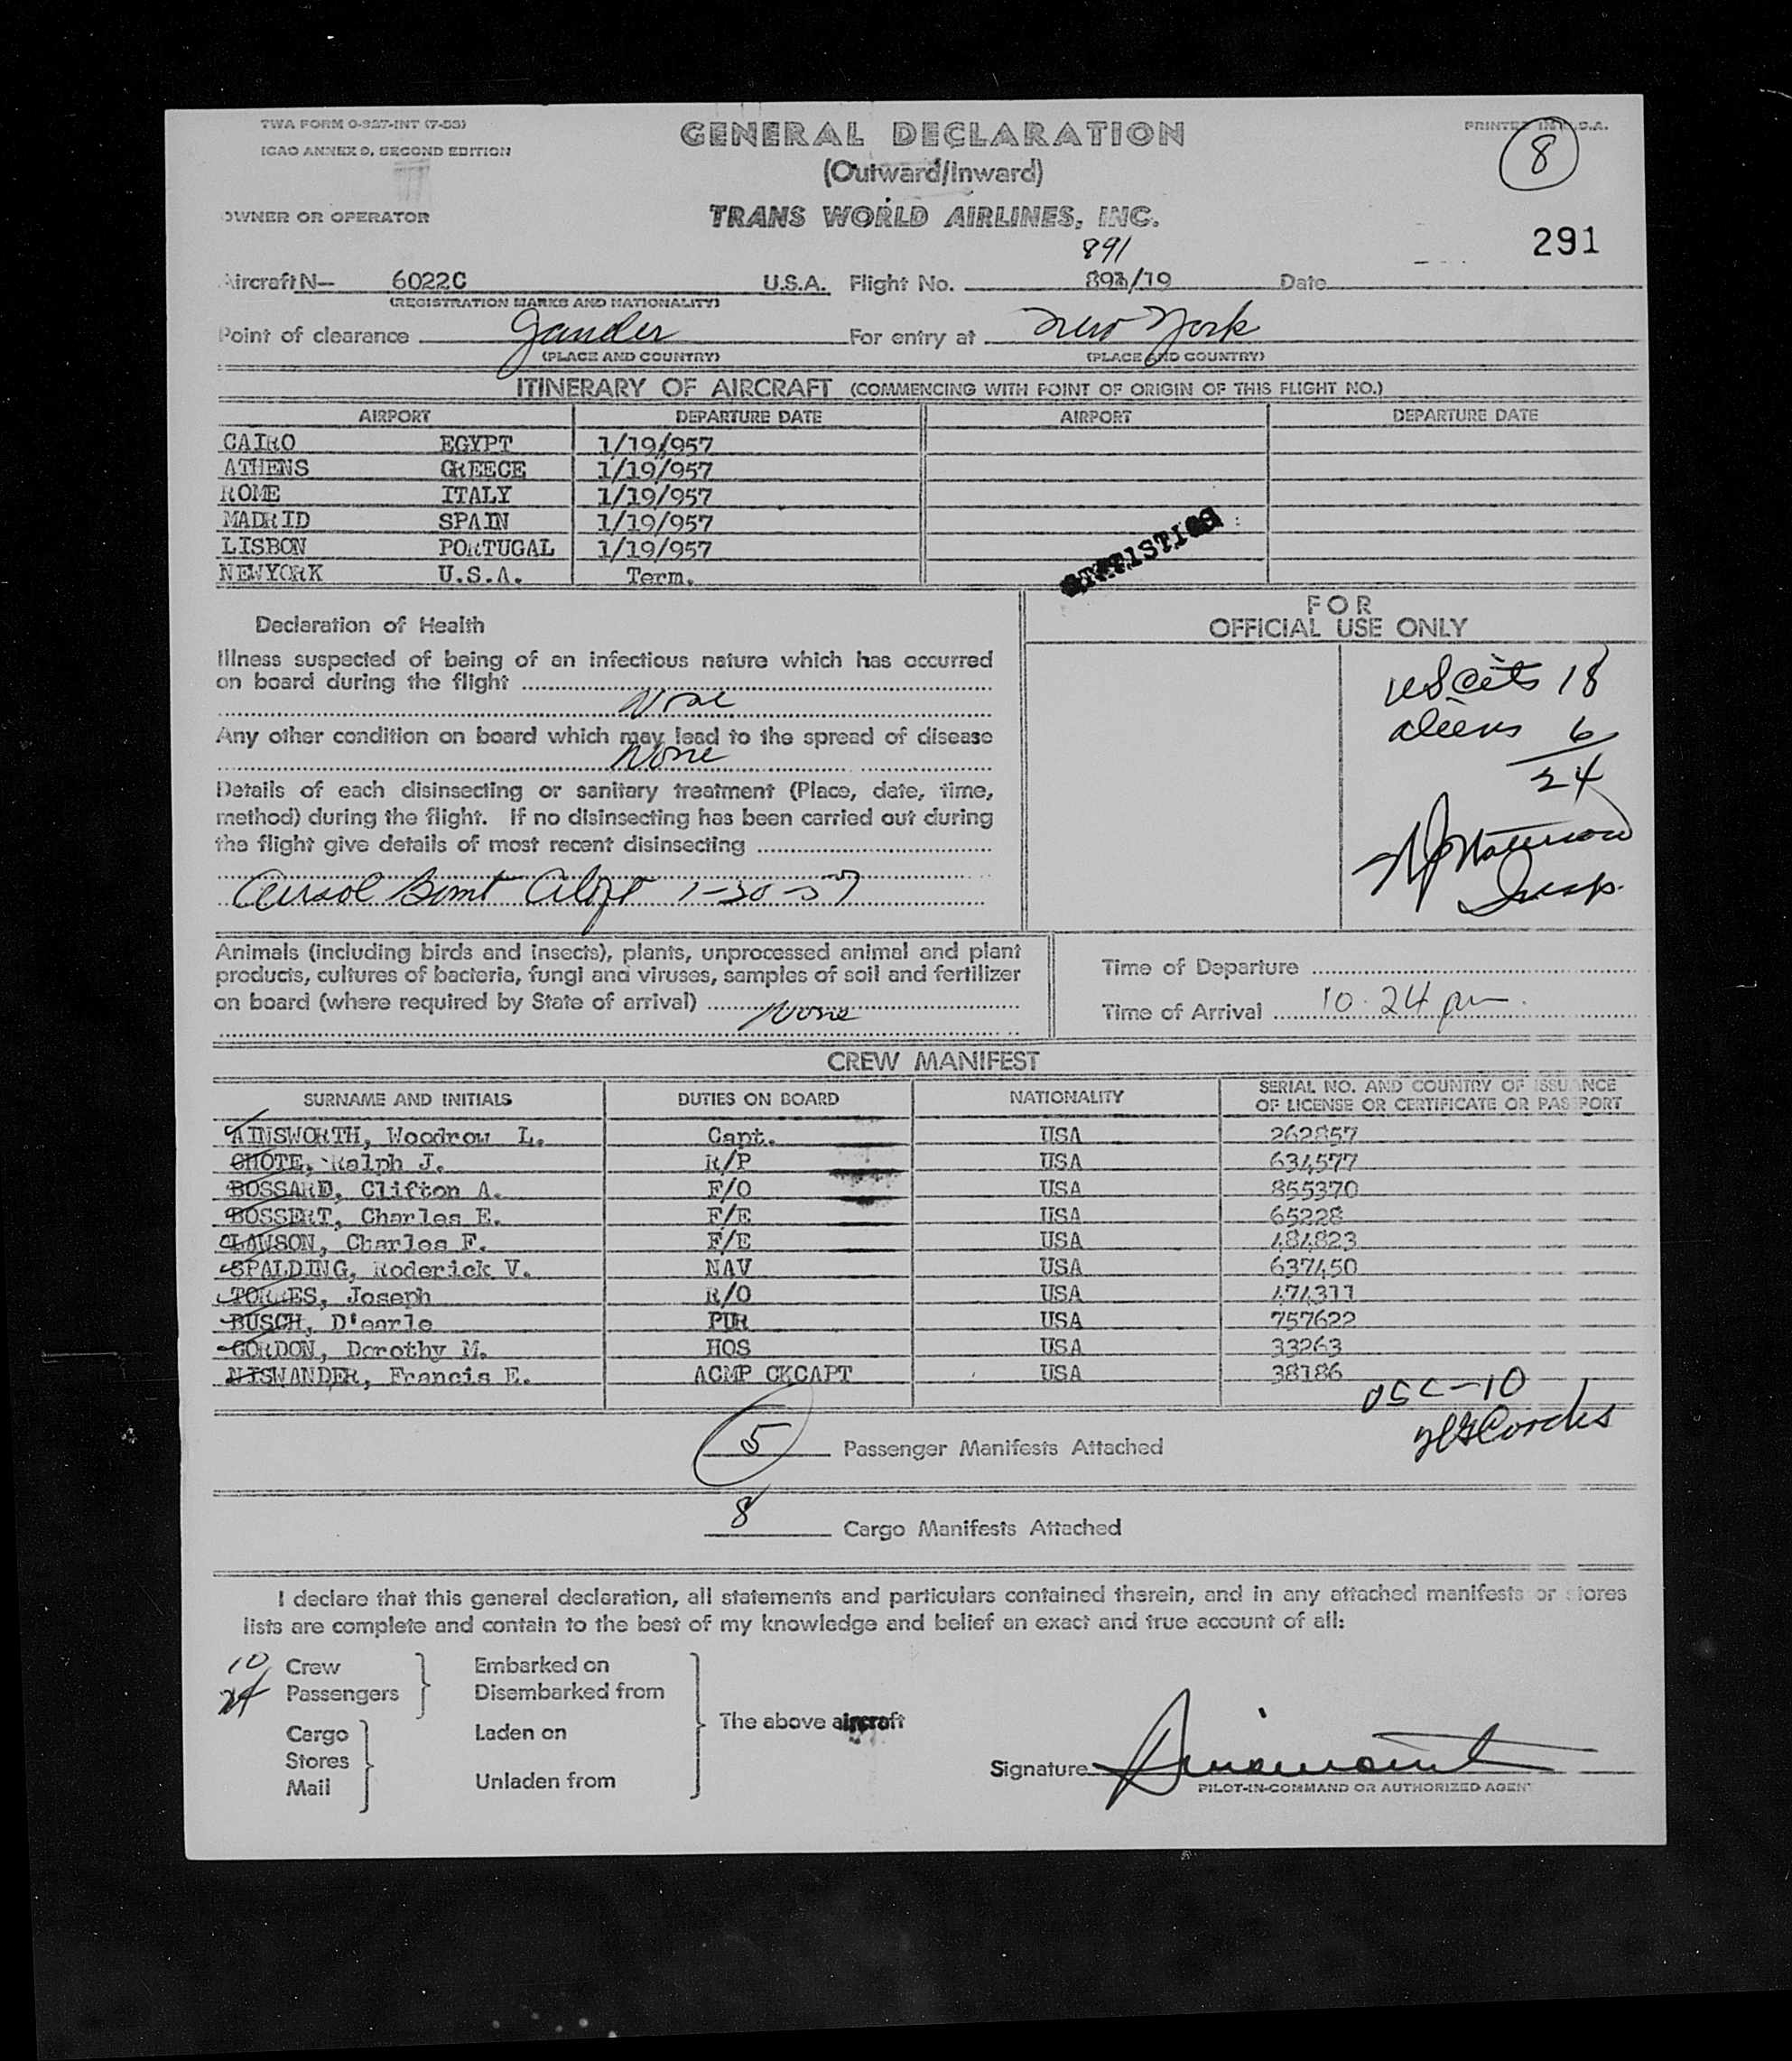 TWA FORM O-327-INT (7-53)
ICAO ANNEX 9, SECOND EDITION
GENERAL DECLARATION
(Outward/Inward)
PRINTED IN U.S.A.
8
OWNER OR OPERATOR
TRANS WORLD AIRLINES, INC.
291
891
Aircraft N— 6022C U.S.A. Flight No. /19 Date
(REGISTRATION MARKS AND NATIONALITY)
Point of clearance Gander For entry at New York
(PLACE AND COUNTRY) (PLACE AND COUNTRY)
ITINERARY OF AIRCRAFT (COMMENCING WITH POINT OF ORIGIN OF THIS FLIGHT NO.)
AIRPORT DEPARTURE DATE AIRPORT DEPARTURE DATE
CAIRO EGYPT 1/19/957
ATHENS GREECE 1/19/957
ROME ITALY 1/19/957
MADRID SPAIN 1/19/957
LISBON PORTUGAL 1/19/957
NEWYORK U.S.A. Term.
STATISTICS
Declaration of Health
FOR
OFFICIAL USE ONLY
Illness suspected of being of an infectious nature which has occurred
on board during the flight
None
Any other condition on board which may lead to the spread of disease
None
Details of each disinsecting or sanitary treatment (Place, date, time,
method) during the flight. If no disinsecting has been carried out during
the flight give details of most recent disinsecting
Aersol Bomb 1-20-57
US cits 18
aliens 6
24
Insp.
Animals (including birds and insects), plants, unprocessed animal and plant
products, cultures of bacteria, fungi and viruses, samples of soil and fertilizer
on board (where required by State of arrival) None
Time of Departure
Time of Arrival 10:24 pm
CREW MANIFEST
SURNAME AND INITIALS DUTIES ON BOARD NATIONALITY SERIAL NO. AND COUNTRY OF ISSUANCE
OF LICENSE OR CERTIFICATE OR PASSPORT
AINSWORTH, Woodrow L. Capt. USA 262857
CHOTE, Ralph J. R/P USA 634577
BOSSARD, Clifton A. F/O USA 855370
BOSSERT, Charles E. F/E USA 65228
CLAWSON, Charles F. F/E USA 484823
SPALDING, Roderick V. NAV USA 637450
TORRES, Joseph R/O USA 474311
BUSCH, D'earle PUR USA 757622
GORDON, Dorothy M. HOS USA 33263
NISWANDER, Francis E. ACMP CKCAPT USA 38186
USC-10
5 Passenger Manifests Attached
8 Cargo Manifests Attached
I declare that this general declaration, all statements and particulars contained therein, and in any attached manifests or stores
lists are complete and contain to the best of my knowledge and belief an exact and true account of all:
10 Crew
24 Passengers
Embarked on
Disembarked from
Cargo
Stores
Mail
Laden on
Unladen from
The above aircraft
Signature
PILOT-IN-COMMAND OR AUTHORIZED AGENT